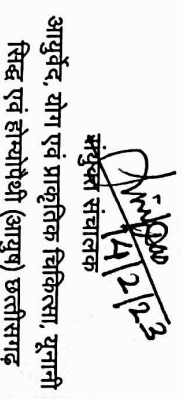 14/2/23
संयुक्त संचालक
आयुर्वेद, योग एवं प्राकृतिक चिकित्सा, यूनानी
सिद्ध एवं होम्योपैथी (आयुष) छत्तीसगढ़